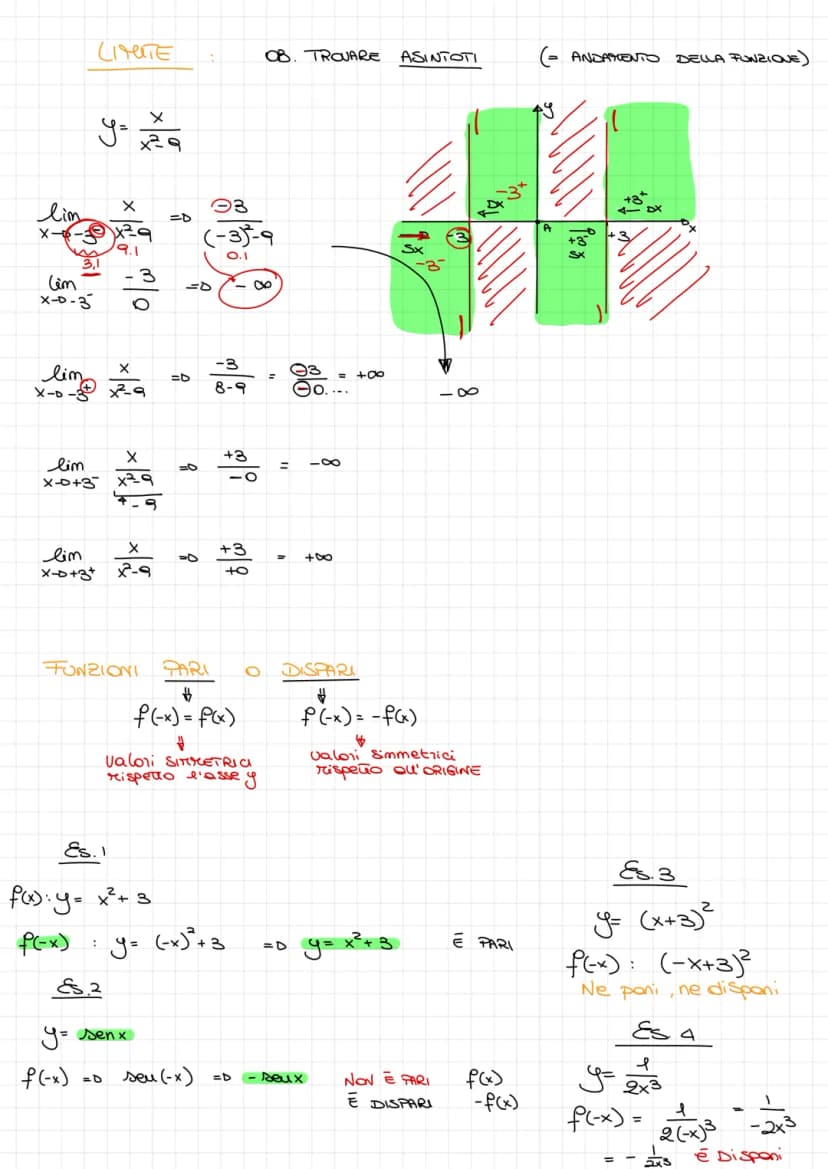 LIMITE : OB. TROVARE ASINTOTI (= ANDAMENTO DELLA FUNZIONE)
y= x / x²-9
y
-3⁺
Dx
+3⁺
Dx
A
x
Sx
-3
-3⁻
+3⁻
Sx
+3
lim x→-3⁻ x / x²-9 => -3 / (-3)²-9
9.1
3,1
0.1
lim x→-3⁻ -3 / 0 => -∞
-∞
lim x→-3⁺ x / x²-9 => -3 / 8-9 = -3 / -0.... = +∞
lim x→+3⁻ x / x²-9 => +3 / -0 = -∞
lim x→+3⁺ x / x²-9 => +3 / +0 = +∞
FUNZIONI PARI O DISPARI
f(-x) = f(x) f(-x) = -f(x)
valori SIMMETRICI rispetto l'asse y
valori simmetrici rispetto all'ORIGINE
Es. 1
f(x): y= x²+3
f(-x) : y= (-x)²+3 => y= x²+3 È PARI
Es. 2
y= senx
f(-x) => sen(-x) => -senx NON È PARI f(x)
È DISPARI -f(x)
Es. 3
y= (x+3)²
f(-x) : (-x+3)²
Ne pari, ne dispari
Es 4
y= 1 / 2x³
f(-x) = 1 / 2(-x)³ = 1 / -2x³
= - 1 / 2x³ È Dispari